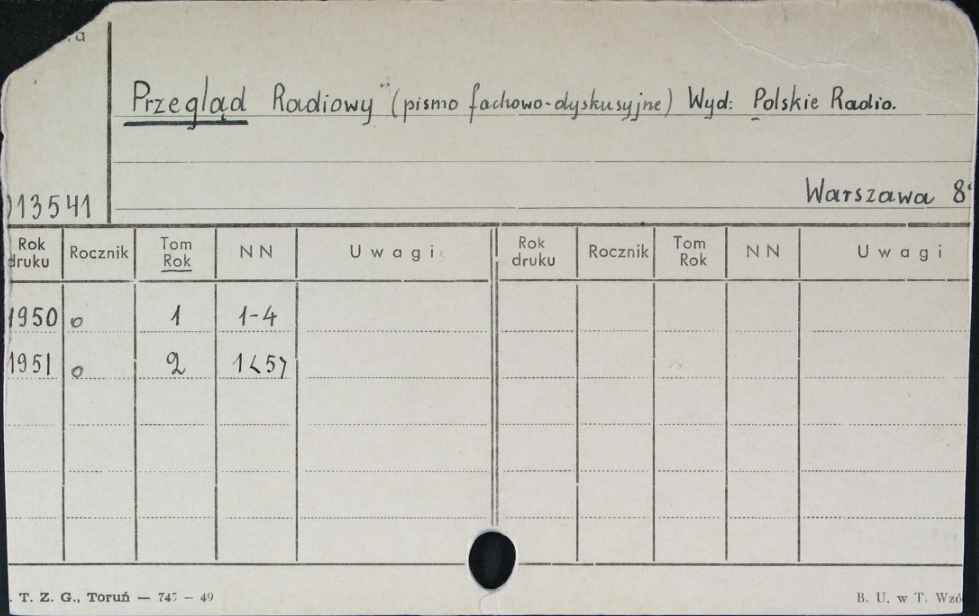 Przegląd Radiowy" (pismo fachowo-dyskusyjne) Wyd: Polskie Radio.
Warszawa 8°
013541
Rok druku Rocznik Tom Rok NN Uwagi Rok druku Rocznik Tom Rok NN Uwagi
1950 o 1 1-4
1951 o 2 1<5>
. T. Z. G., Toruń — 747 — 49
B. U. w T. Wzó